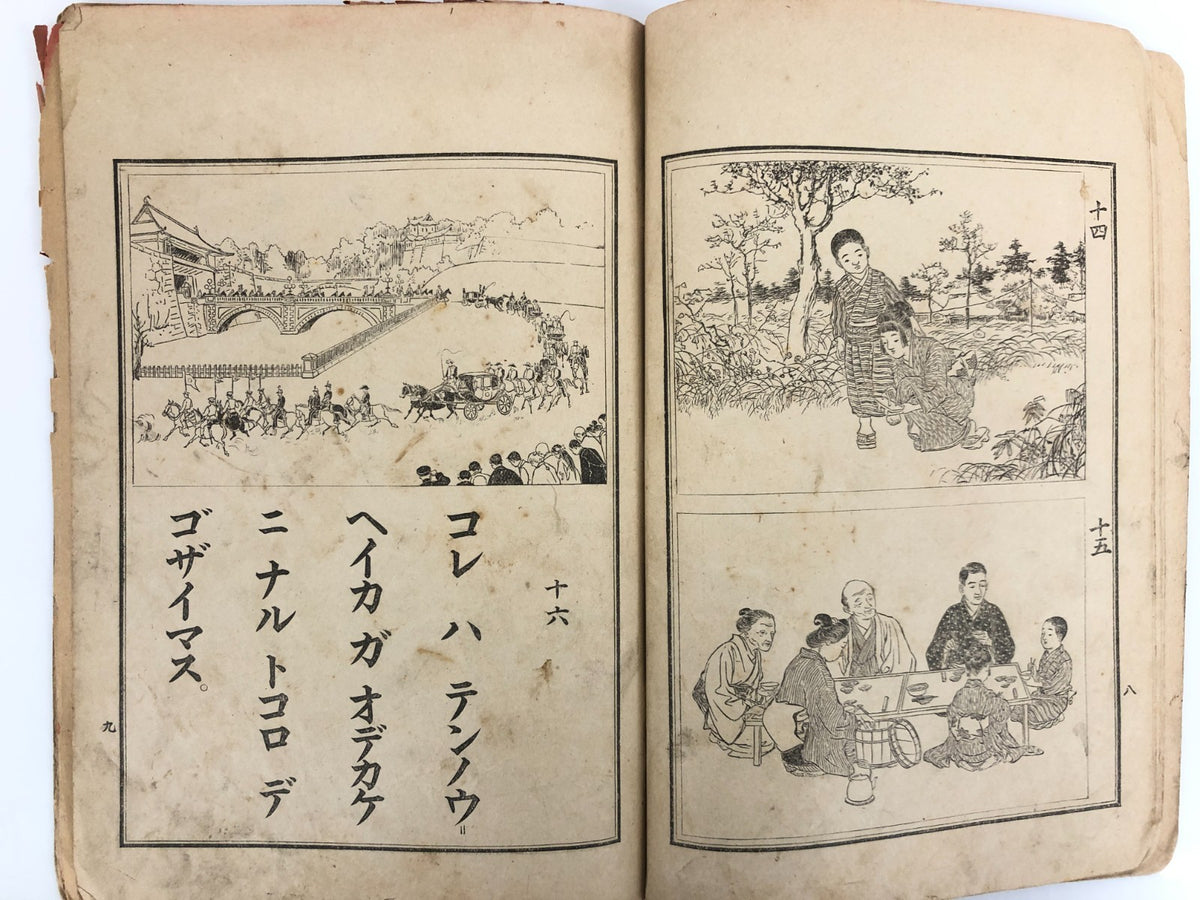 十四
十五
八
十六
コレ ハ テンノウ゠
ヘイカ ガ オデカケ
ニ ナル トコロ デ
ゴザイマス。
九